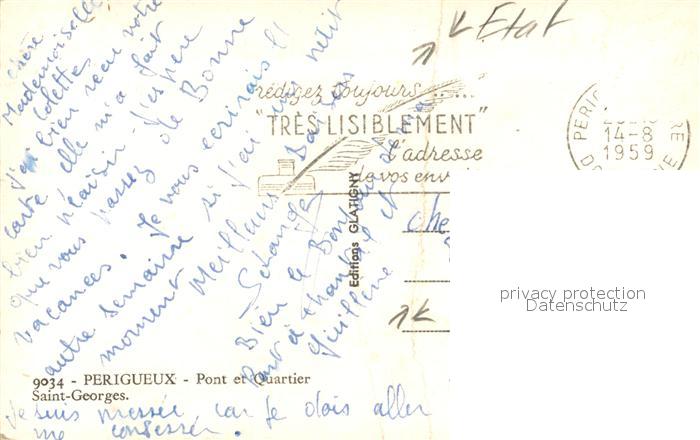 Chère
Mademoiselle
Colette
J'ai bien reçu votre
carte elle m'a fait
bien plaisir. J'espère
que vous passez de Bonne
vacances. Je vous écrirais l'
autre semaine si j'ai un petit
moment Meilleurs Baisers
Bien le Bonjour
part à Chantal et
Guilène
Je suis pressée car je dois aller
me confesser.
9034 - PERIGUEUX - Pont et Quartier
Saint-Georges.
Editions GLATIGNY
rédigez toujours
"TRÈS LISIBLEMENT"
l'adresse
de vos env
PERIG RE
14-8
1959
DORDOGNE
Etat
che
privacy protection
Datenschutz